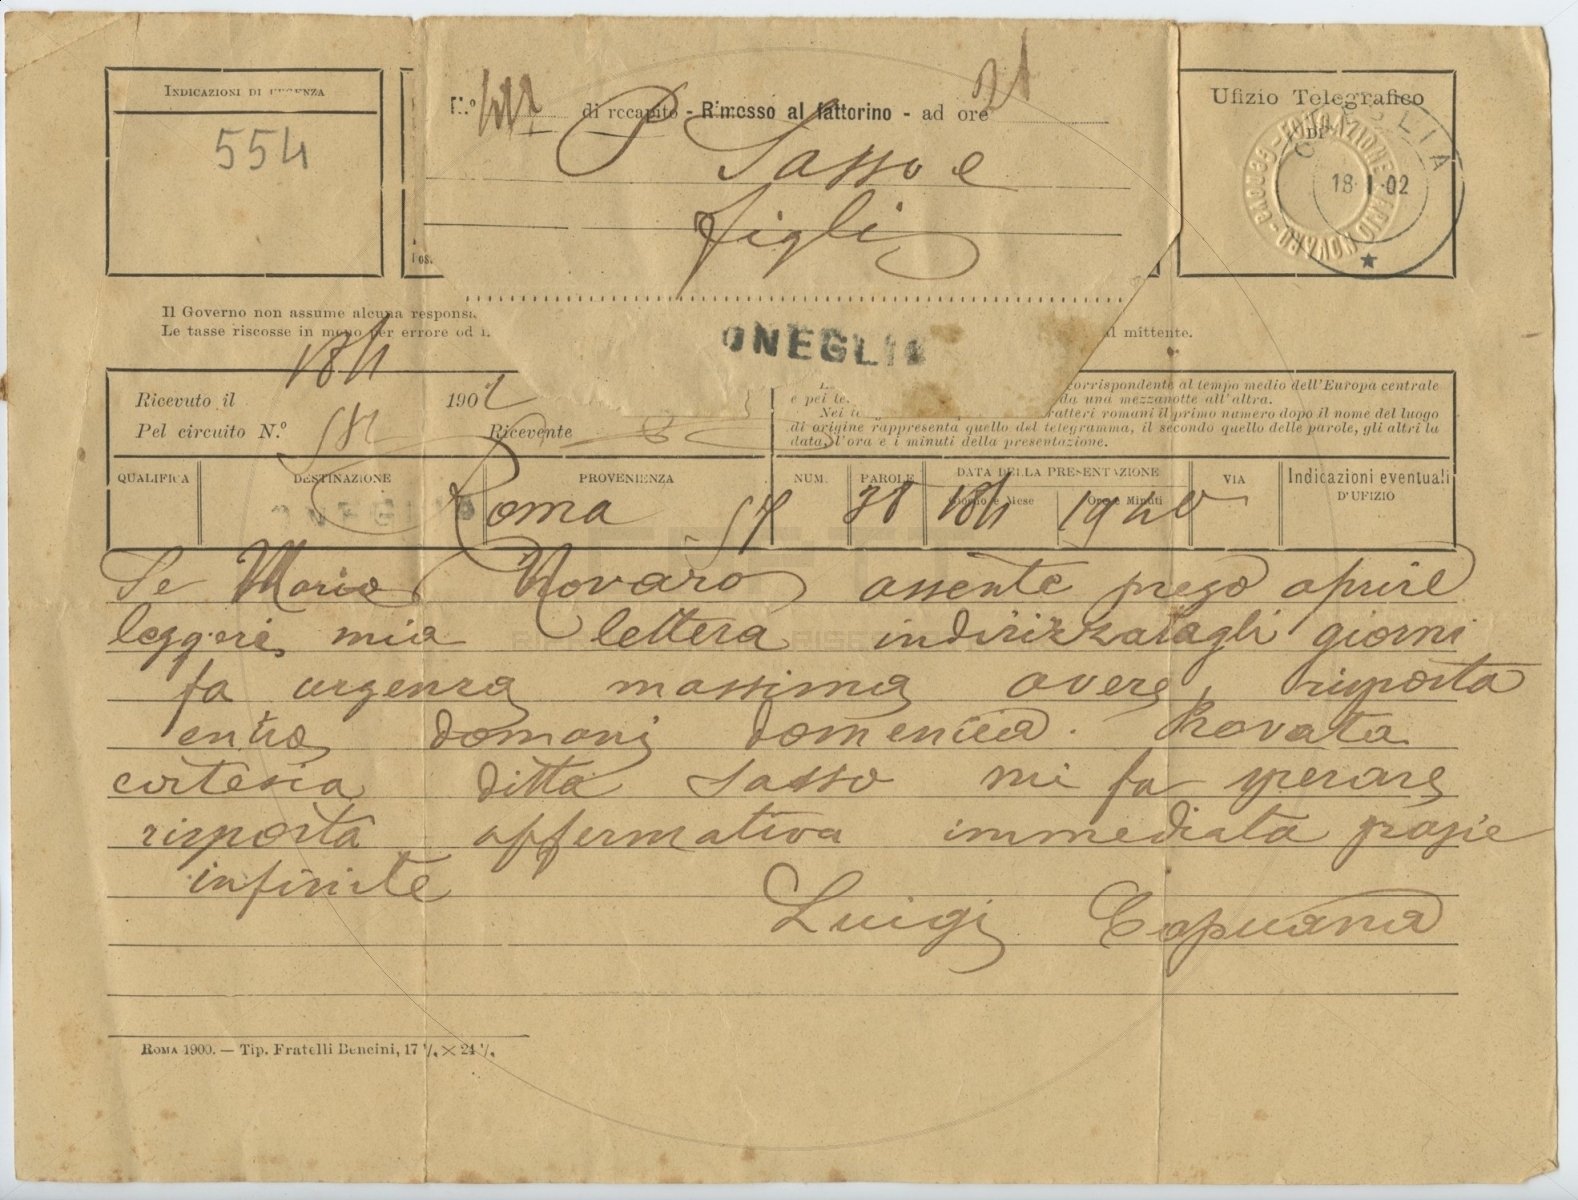 INDICAZIONI DI URGENZA
554
N.º di recapito - Rimesso al fattorino - ad ore 21
P Sasso e
figli
Ufizio Telegrafico
DI
ONEGLIA
18 1 02
FONDAZIONE MARIO NOVARO
Il Governo non assume alcuna responsa
Le tasse riscosse in meno per errore od i
l mittente.
ONEGLIA
Ricevuto il 18/1 1902
Pel circuito N.º Ricevente
corrispondente al tempo medio dell'Europa centrale
e pel te. da una mezzanotte all'altra.
Nei te ratteri romani il primo numero dopo il nome del luogo
di origine rappresenta quello del telegramma, il secondo quello delle parole, gli altri la
data, l'ora e i minuti della presentazione.
QUALIFICA DESTINAZIONE PROVENIENZA NUM. PAROLE DATA DELLA PRESENTAZIONE VIA Indicazioni eventuali
Giorno e Mese Ore e Minuti D'UFIZIO
ONEGLIA Roma 38 18/1 19 40
Se Mario Novaro assente prego aprire
leggere mia lettera indirizzatagli giorni
fa urgenza massima avere risposta
entro domani domenica. Provata
cortesia ditta Sasso mi fa sperare
risposta affermativa immediata grazie
infinite
Luigi Capuana
ROMA 1900. — Tip. Fratelli Bencini, 17 ½ × 24 ½.